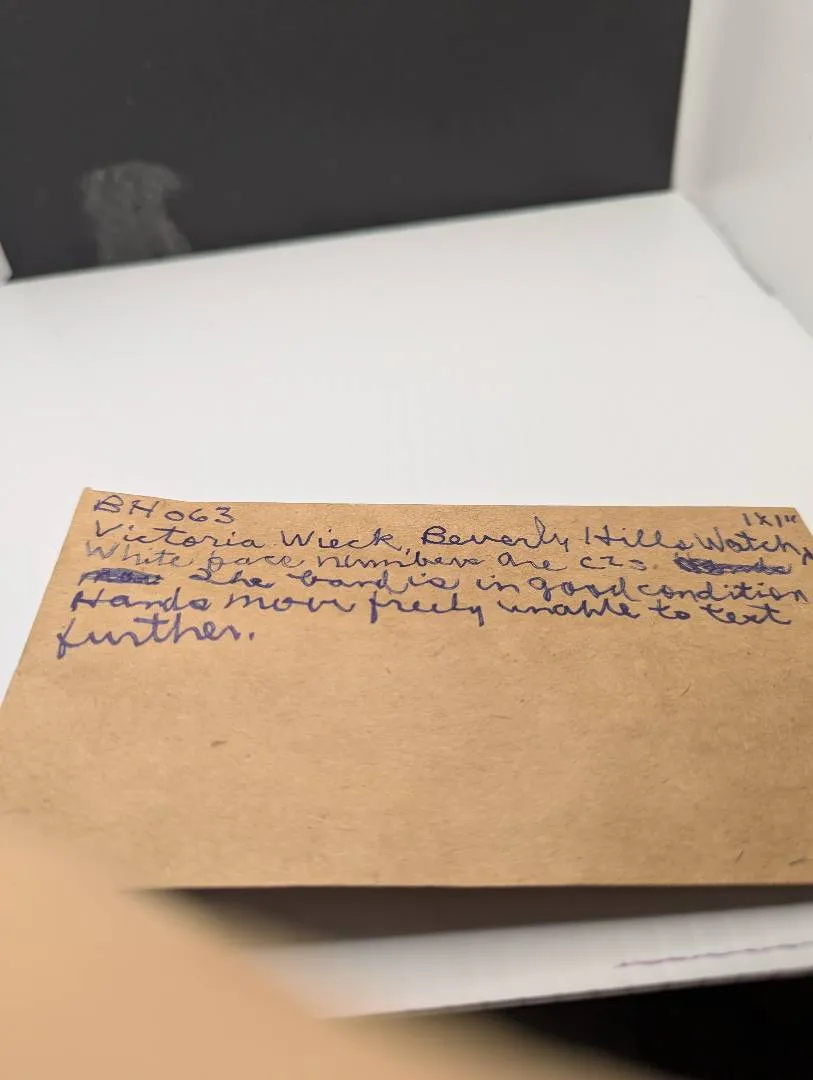 BH 063
1 x 1"
Victoria Wieck, Beverly Hills Watch,
White face numbers are CZs.
The band is in good condition
Hands move freely unable to test
further.